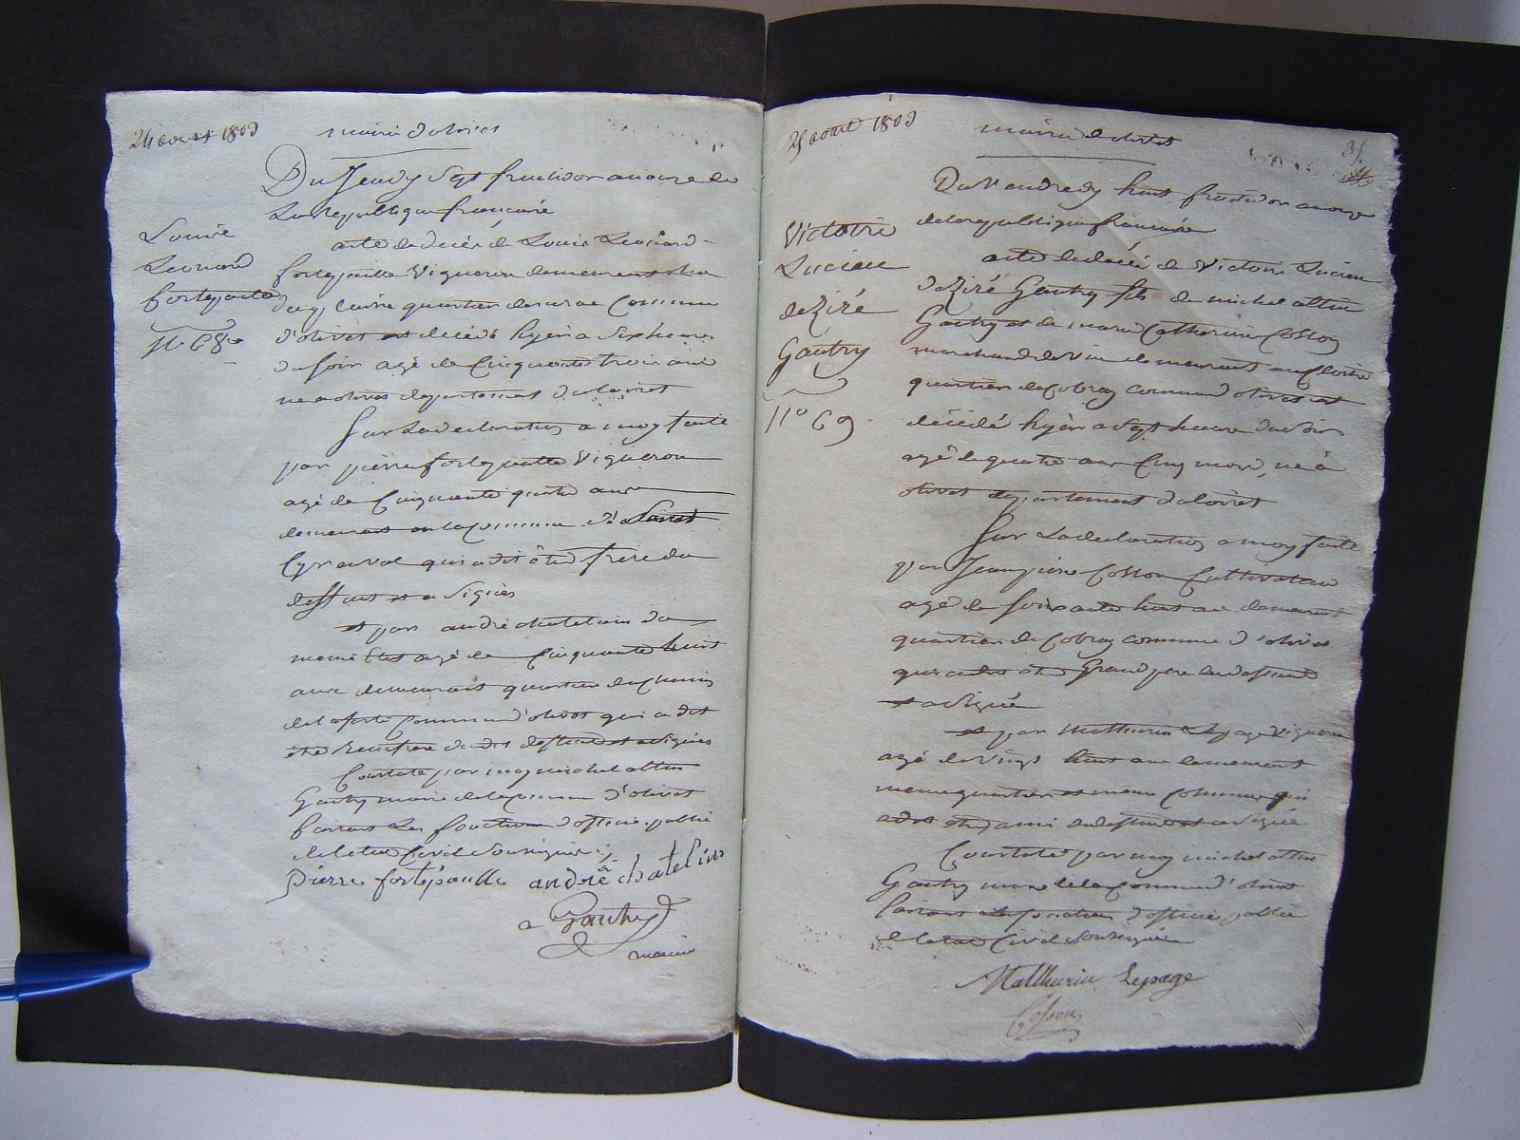 24 aout 1803
mairie d'olivet
Du Jeudy sept fructidor an onze de
La republique francaise
Louis
Leonard
fortepaulle
N° 68
acte de decès de Louis Leonard
fortepaulle Vigneron demeurant
quartier commune
d'olivet est decedé hyer a sept heures
du soir agé de Cinquante trois ans
né a olivet departement du loiret
Sur La declaration a moy faite
par pierre fortepaulle Vigneron
agé de Cinquante quatre ans
demeurant en la commune de Saint
Cyr en val qui a dit être frere du
deffunt et a Signé
et par andré chatelain du
meme etat agé de Cinquante huit
ans demeurant quartier du chemin
de la ferté commune d'olivet qui a dit
etre beaufrere du dit deffunt et a Signé
Constaté par moy michel altin
Gautry maire de la commune d'olivet
faisant Les fonctions d'officier public
de letat Civil Soussigné
Pierre fortépaulle andré chatelain
a Gautry
maire
25 aout 1803
mairie d'olivet
31
Du Vendredy huit fructidor an onze
de la republique francaise
Victoire
Lucien
deziré
Gautry
N° 69
acte de decés de Victoire Lucien
deziré Gautry fils de michel altin
Gautry et de marie Catherine Cosson
marchand de Vin demeurant au Cloitre
quartier de Cobray commune d'olivet est
décédé hyer a sept heures du soir
agé de quatre ans Cinq mois, né à
olivet departement du loiret
Sur La declaration a moy faite
par Jean pierre Cosson Cultivateur
agé de soixante huit ans demeurant
quartier de Cobray commune d'olivet
qui a dit etre Grand pere du deffunt
et a Signé
et par Mathurin Lepage Vigneron
agé de Vingt huit ans demeurant
meme quartier et meme commune qui
a dit etre ami du deffunt et a Signé
Constaté par moy michel altin
Gautry maire de la commune d'olivet
faisant les fonctions d'officier public
de letat Civil Soussigné
Mathurin Lepage
Cosson